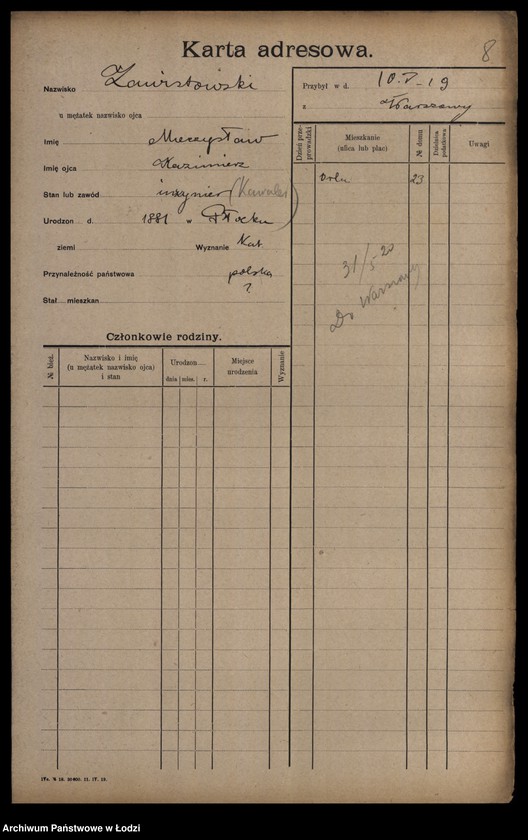 Karta adresowa.
8
Nazwisko Zawistowski
u mężatek nazwisko ojca
Imię Mieczysław
Imię ojca Kazimierz
Stan lub zawód inżynier (Kawaler)
Urodzon d. 1881 w Płocku
ziemi Wyznanie Kat.
Przynależność państwowa polska
?
Stał. mieszkan.
Przybył w d. 10.V-19
z Warszawy
Dzień przeprowadzki
Mieszkanie (ulica lub plac)
№ domu
Uwagi
Orla 23
31/5 20
Do Warszawy
Członkowie rodziny.
№ bież.
Nazwisko i imię (u mężatek nazwisko ojca) i stan
Urodzon
dnia mies. r.
Miejsce urodzenia
Wyznanie
Archiwum Państwowe w Łodzi